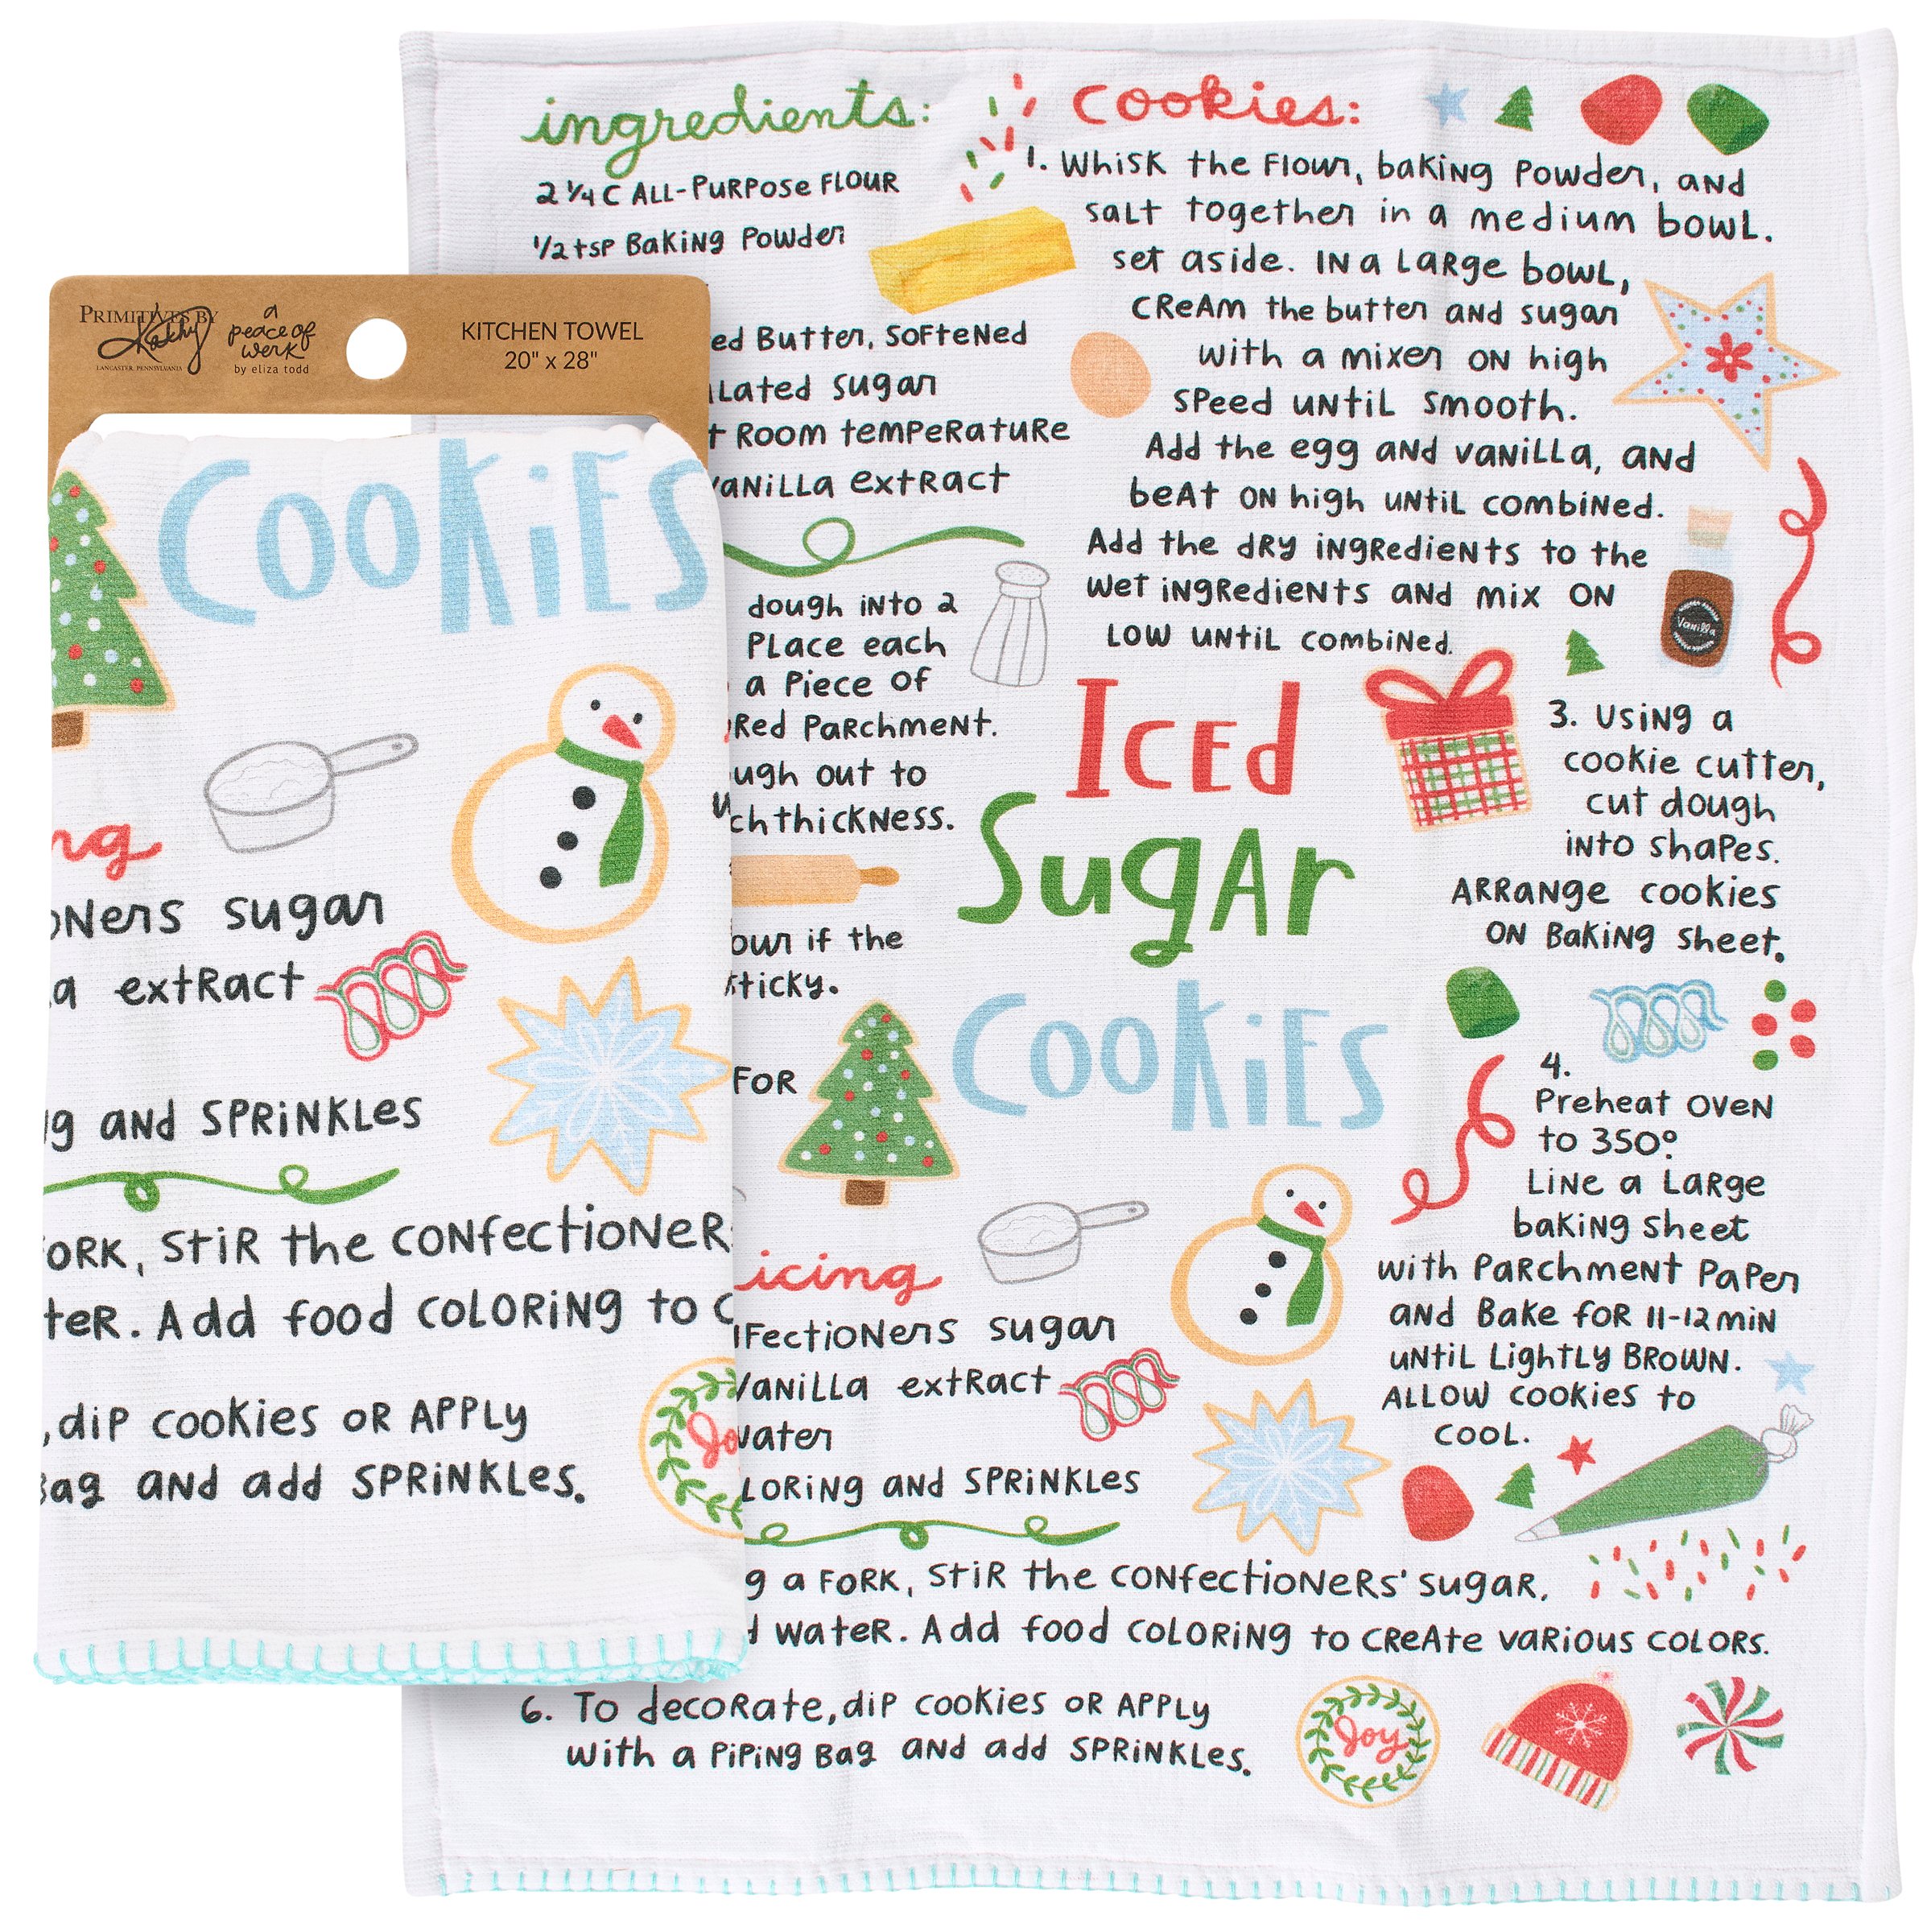 PRIMITIVES BY
Kathy
LANCASTER, PENNSYLVANIA
a
peace of
werk
by eliza todd
KITCHEN TOWEL
20" x 28"
COOKiES
oners sugar
extract
and SPRiNKLES
ORK, Stir the confectioner
ter. Add food coloring to
, dip cookies or apply
Bag and add SPRiNKLes.
ingredients:
2 1/4 C ALL-PURPOSE FLOUR
1/2 tsp Baking Powder
ed Butter, Softened
lated sugar
t Room temperature
vanilla extract
dough into 2
Place each
a Piece of
Red Parchment.
ugh out to
ch thickness.
our if the
sticky.
FOR
cookies:
1. Whisk the flour, baking powder, and
salt together in a medium bowl.
set aside. In a large bowl,
cream the butter and sugar
with a mixer on high
speed until smooth.
Add the egg and vanilla, and
beat on high until combined.
Add the dry ingredients to the
wet ingredients and mix on
low until combined.
Iced
Sugar
Cookies
3. Using a
cookie cutter,
cut dough
into shapes.
Arrange cookies
on Baking sheet.
4.
Preheat oven
to 350°.
Line a large
baking sheet
with parchment paper
and Bake for 11-12 min
until lightly brown.
Allow cookies to
cool.
Vanilla
icing
nfectioners sugar
Vanilla extract
water
loring and sprinkles
g a fork, stir the confectioners' sugar,
d water. Add food coloring to create various colors.
6. To decorate, dip cookies or apply
with a piping Bag and add sprinkles.
Joy